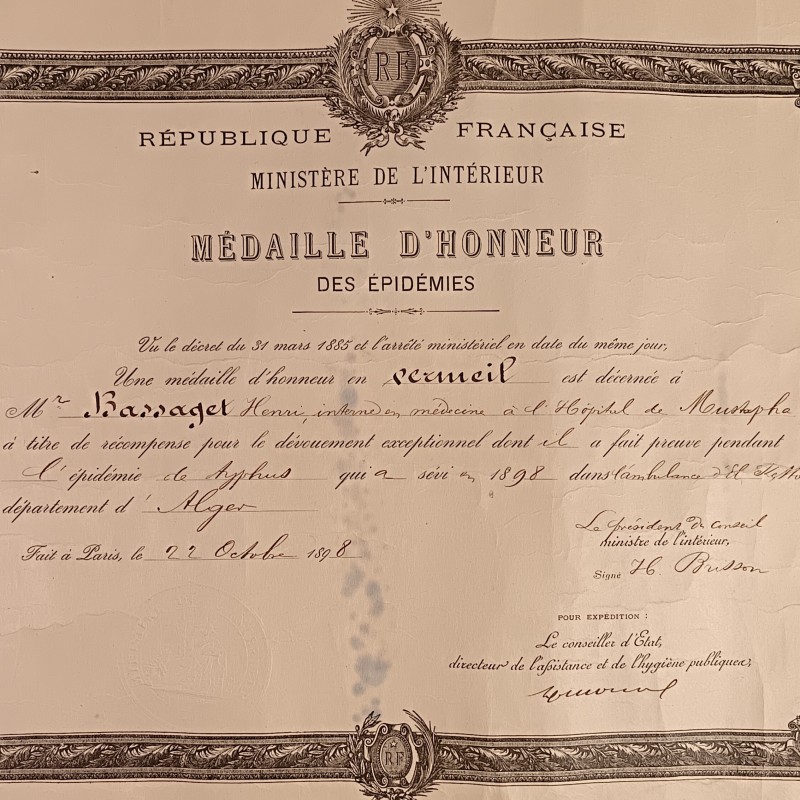 RF
RÉPUBLIQUE FRANÇAISE
MINISTÈRE DE L'INTÉRIEUR
MÉDAILLE D'HONNEUR
DES ÉPIDÉMIES
Vu le décret du 31 mars 1885 et l'arrêté ministériel en date du même jour,
Une médaille d'honneur en vermeil est décernée à
Mr Bassaget Henri, interne en médecine à l'Hôpital de Mustapha
à titre de récompense pour le dévouement exceptionnel dont il a fait preuve pendant
l'épidémie de typhus qui a sévi en 1898 dans l'ambulance d'El
département d'Alger
Fait à Paris, le 22 Octobre 1898
Le président du conseil
ministre de l'intérieur,
Signé H. Brisson
POUR EXPÉDITION :
Le conseiller d'Etat,
directeur de l'assistance et de l'hygiène publiques,
RF